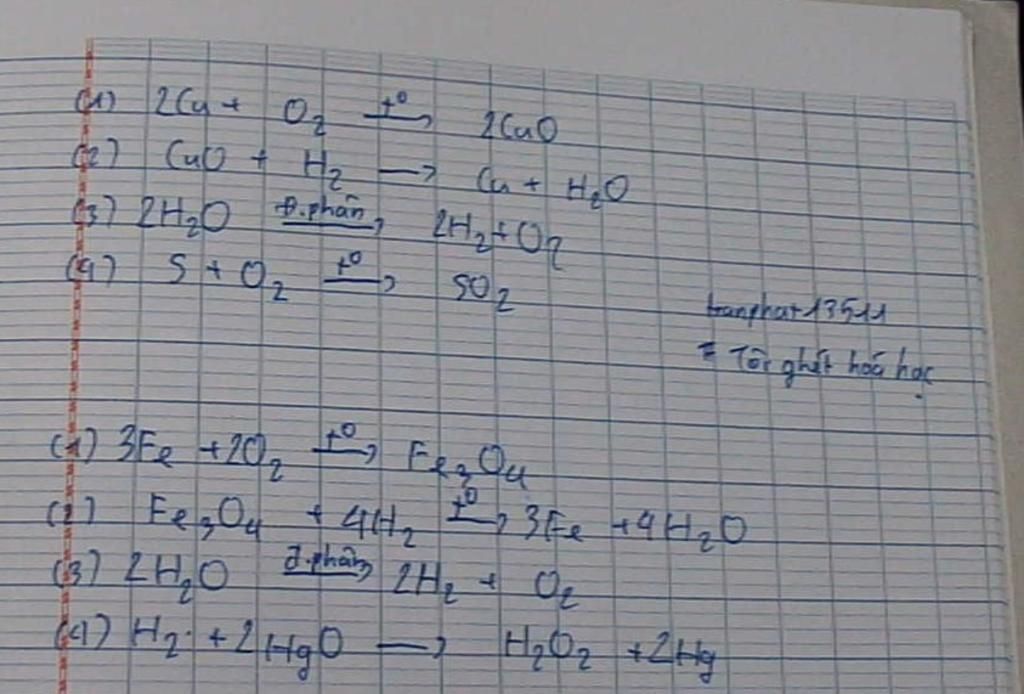 (1) 2Cu + O₂ t⁰→ 2CuO
(2) CuO + H₂ → Cu + H₂O
(3) 2H₂O Đ.phân→ 2H₂ + O₂
(4) S + O₂ t⁰→ SO₂
tranphat13511
= Tôi ghét hoá học
(1) 3Fe + 2O₂ t⁰→ Fe₃O₄
(2) Fe₃O₄ + 4H₂ t⁰→ 3Fe + 4H₂O
(3) 2H₂O đ.phân→ 2H₂ + O₂
(4) H₂ + 2HgO → H₂O₂ + 2Hg